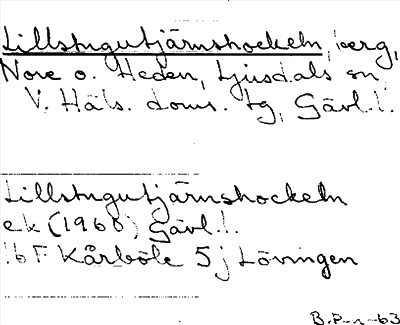 Lillstugutjärnshockeln, berg,
Nore o. Heden, Ljusdals sn
V. Häls. doms. tg, Gävl. l.
Lillstugutjärnshockeln
ek (1960) Gävl. l.
16 F Kårböle 5 j Lövingen
B.P-n-63